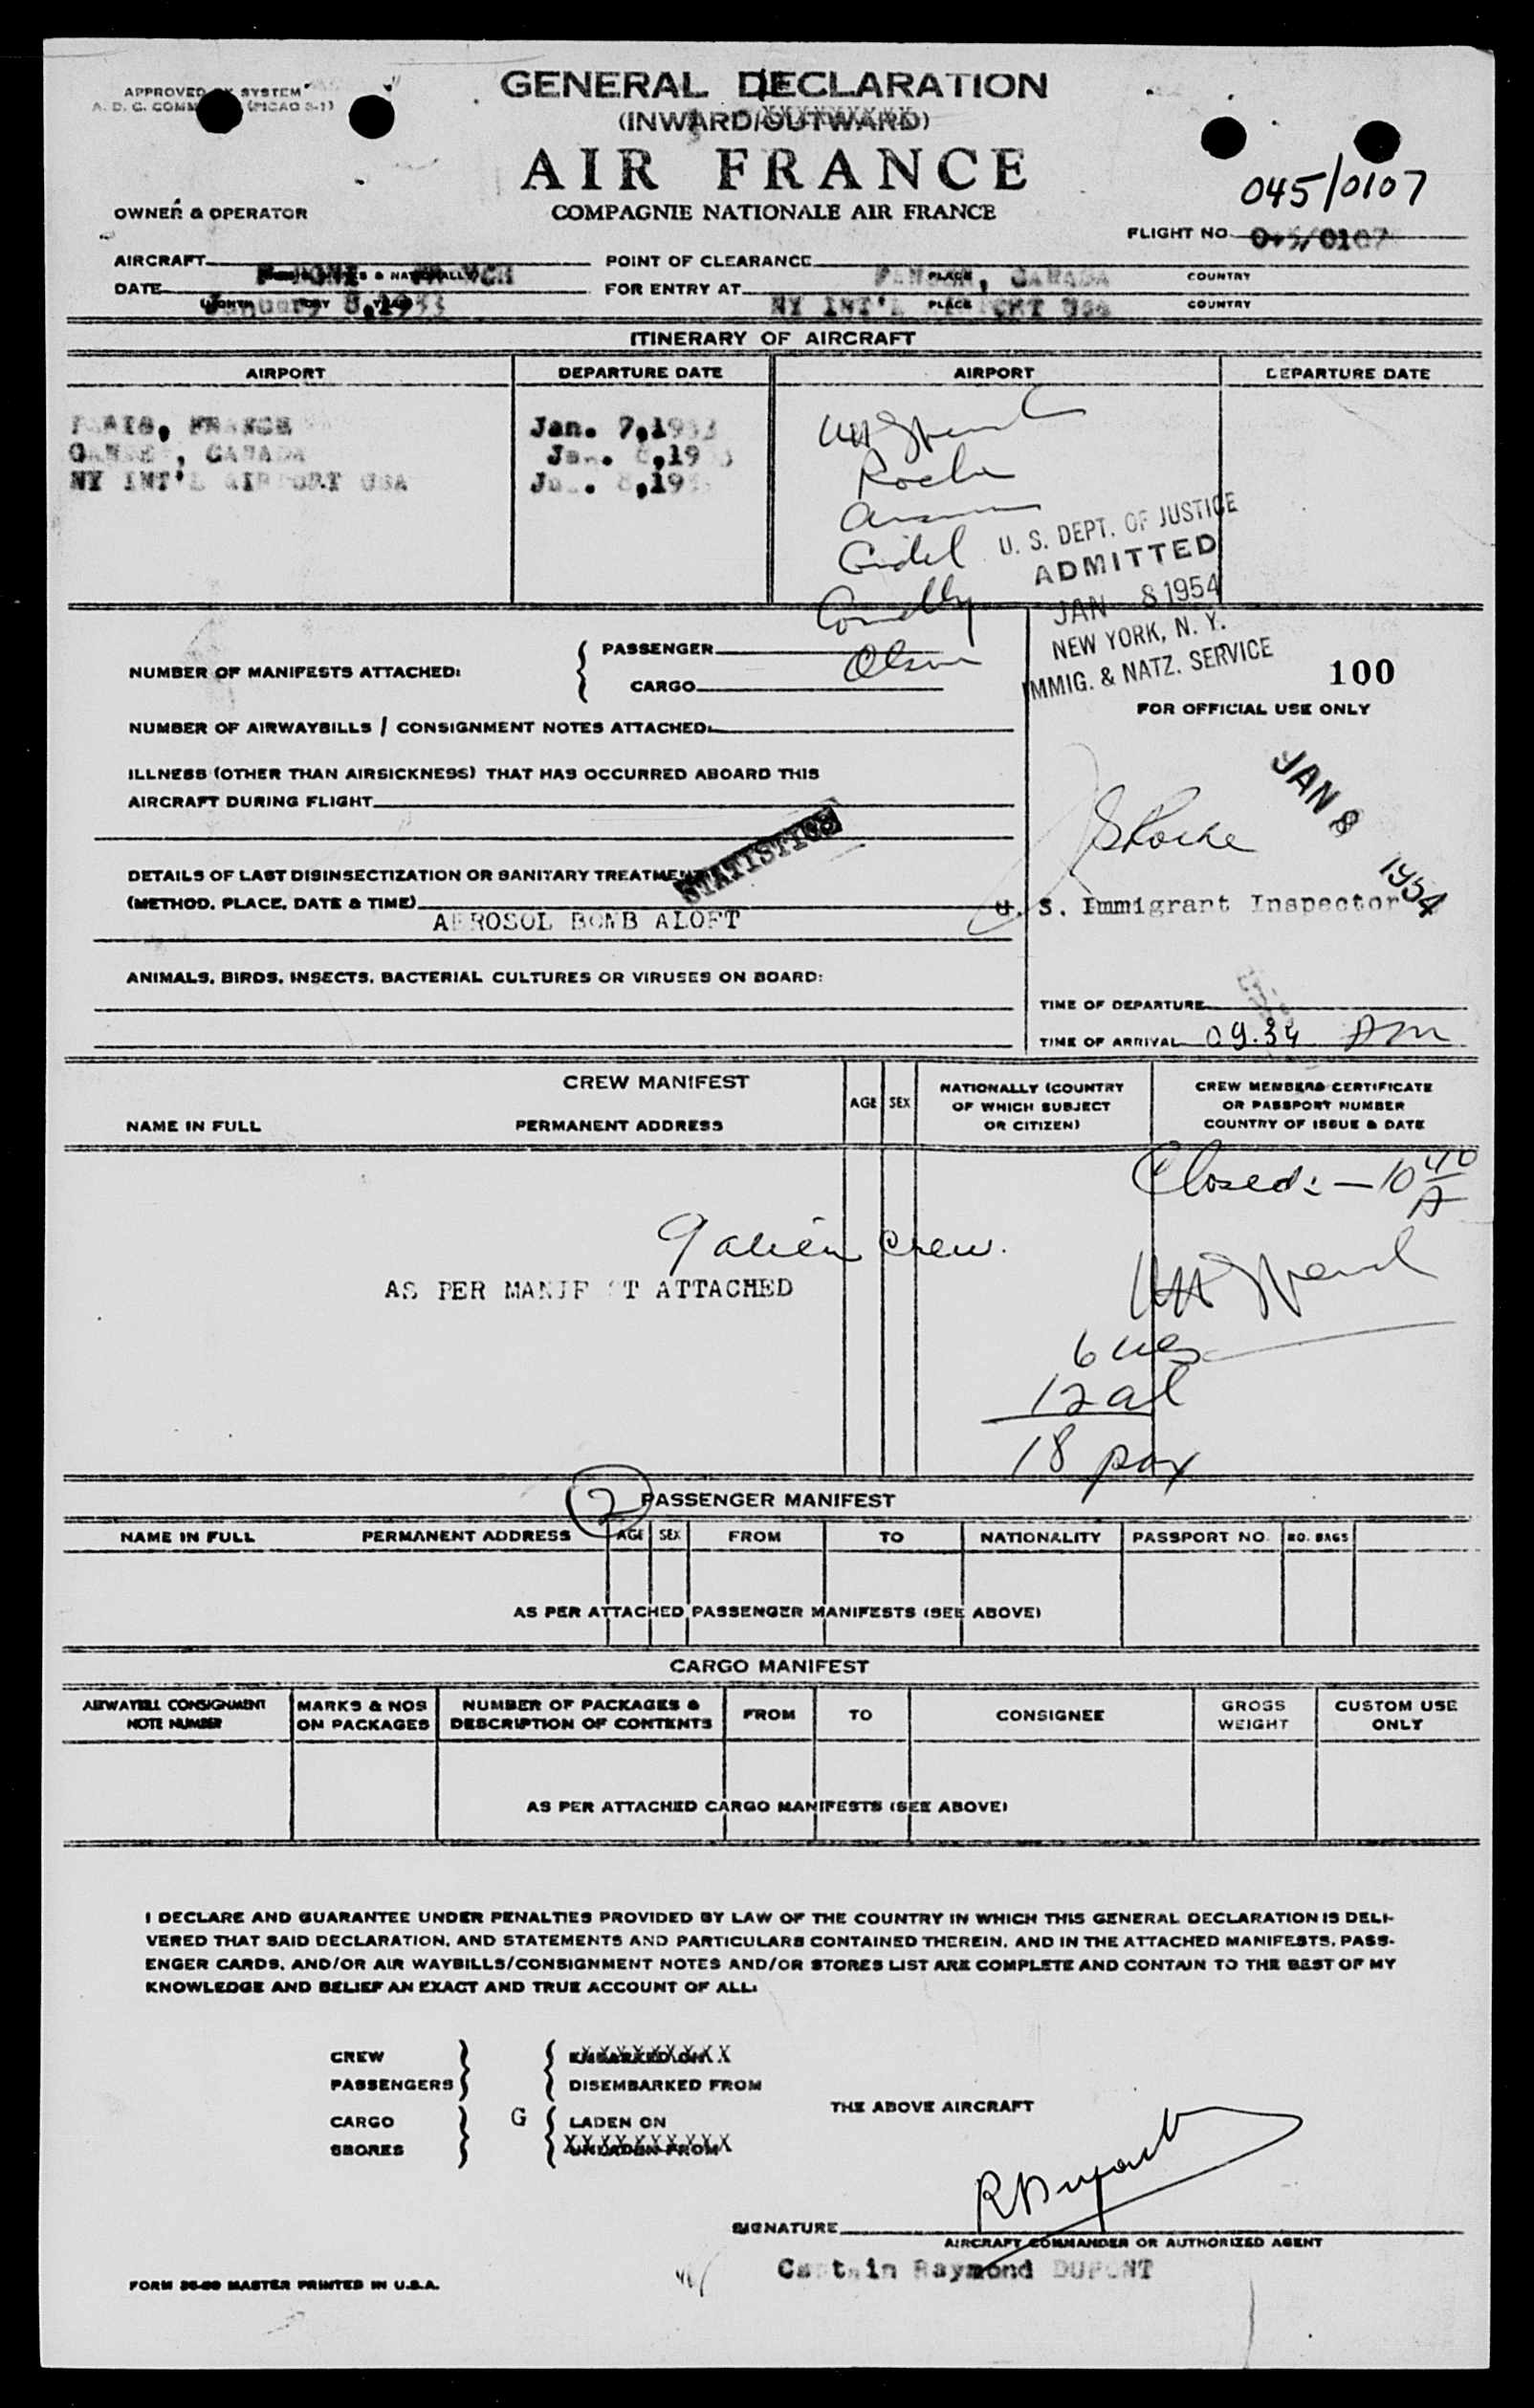 GENERAL DECLARATION
(INWARD/OUTWARD)
AIR FRANCE
COMPAGNIE NATIONALE AIR FRANCE
APPROVED SYSTEM
A. D. C. (PICAO S-1)
OWNER & OPERATOR
045/0107
FLIGHT NO. 045/0107
AIRCRAFT
POINT OF CLEARANCE CANADA
PLACE COUNTRY
DATE January 8,1953
MONTH DAY YEAR
FOR ENTRY AT NY INT'L USA
PLACE COUNTRY
ITINERARY OF AIRCRAFT
AIRPORT DEPARTURE DATE AIRPORT DEPARTURE DATE
PARIS, FRANCE Jan. 7,1953
CANADA
NY INT'L AIRPORT USA
Roche
Gidel
Olson
U. S. DEPT. OF JUSTICE
ADMITTED
JAN 8 1954
NEW YORK, N. Y.
IMMIG. & NATZ. SERVICE
NUMBER OF MANIFESTS ATTACHED:
PASSENGER
CARGO
100
FOR OFFICIAL USE ONLY
NUMBER OF AIRWAYBILLS / CONSIGNMENT NOTES ATTACHED:
ILLNESS (OTHER THAN AIRSICKNESS) THAT HAS OCCURRED ABOARD THIS
AIRCRAFT DURING FLIGHT
JAN 8 1954
STATISTICS
DETAILS OF LAST DISINSECTIZATION OR SANITARY TREATMENT
(METHOD, PLACE, DATE & TIME)
AEROSOL BOMB ALOFT
U. S. Immigrant Inspector
ANIMALS, BIRDS, INSECTS, BACTERIAL CULTURES OR VIRUSES ON BOARD:
TIME OF DEPARTURE
TIME OF ARRIVAL 09.34 AM
CREW MANIFEST
NAME IN FULL PERMANENT ADDRESS
AGE SEX
NATIONALLY (COUNTRY
OF WHICH SUBJECT
OR CITIZEN)
CREW MEMBERS CERTIFICATE
OR PASSPORT NUMBER
COUNTRY OF ISSUE & DATE
Closed:- 10 40 A
9 alien crew.
AS PER MANIFEST ATTACHED
6
12 al
18 pax
2
PASSENGER MANIFEST
NAME IN FULL PERMANENT ADDRESS AGE SEX FROM TO NATIONALITY PASSPORT NO. NO. BAGS
AS PER ATTACHED PASSENGER MANIFESTS (SEE ABOVE)
CARGO MANIFEST
AIRWAYBILL CONSIGNMENT
NOTE NUMBER
MARKS & NOS
ON PACKAGES
NUMBER OF PACKAGES &
DESCRIPTION OF CONTENTS
FROM TO CONSIGNEE
GROSS
WEIGHT
CUSTOM USE
ONLY
AS PER ATTACHED CARGO MANIFESTS (SEE ABOVE)
I DECLARE AND GUARANTEE UNDER PENALTIES PROVIDED BY LAW OF THE COUNTRY IN WHICH THIS GENERAL DECLARATION IS DELI-
VERED THAT SAID DECLARATION, AND STATEMENTS AND PARTICULARS CONTAINED THEREIN, AND IN THE ATTACHED MANIFESTS, PASS-
ENGER CARDS, AND/OR AIR WAYBILLS/CONSIGNMENT NOTES AND/OR STORES LIST ARE COMPLETE AND CONTAIN TO THE BEST OF MY
KNOWLEDGE AND BELIEF AN EXACT AND TRUE ACCOUNT OF ALL:
CREW EMBARKED ON
PASSENGERS DISEMBARKED FROM
THE ABOVE AIRCRAFT
CARGO G LADEN ON
SBORES UNLADEN FROM
SIGNATURE RDupont
AIRCRAFT COMMANDER OR AUTHORIZED AGENT
Captain Raymond DUPONT
FORM MASTER PRINTED IN U.S.A.